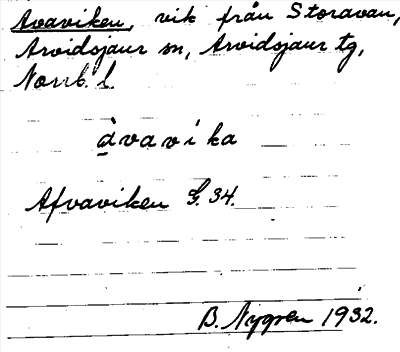 Avaviken, vik från Storavan,
Arvidsjaur sn, Arvidsjaur tg,
Norrb. l.
àvavika
Afvaviken G. 34.
B. Nygren 1932.